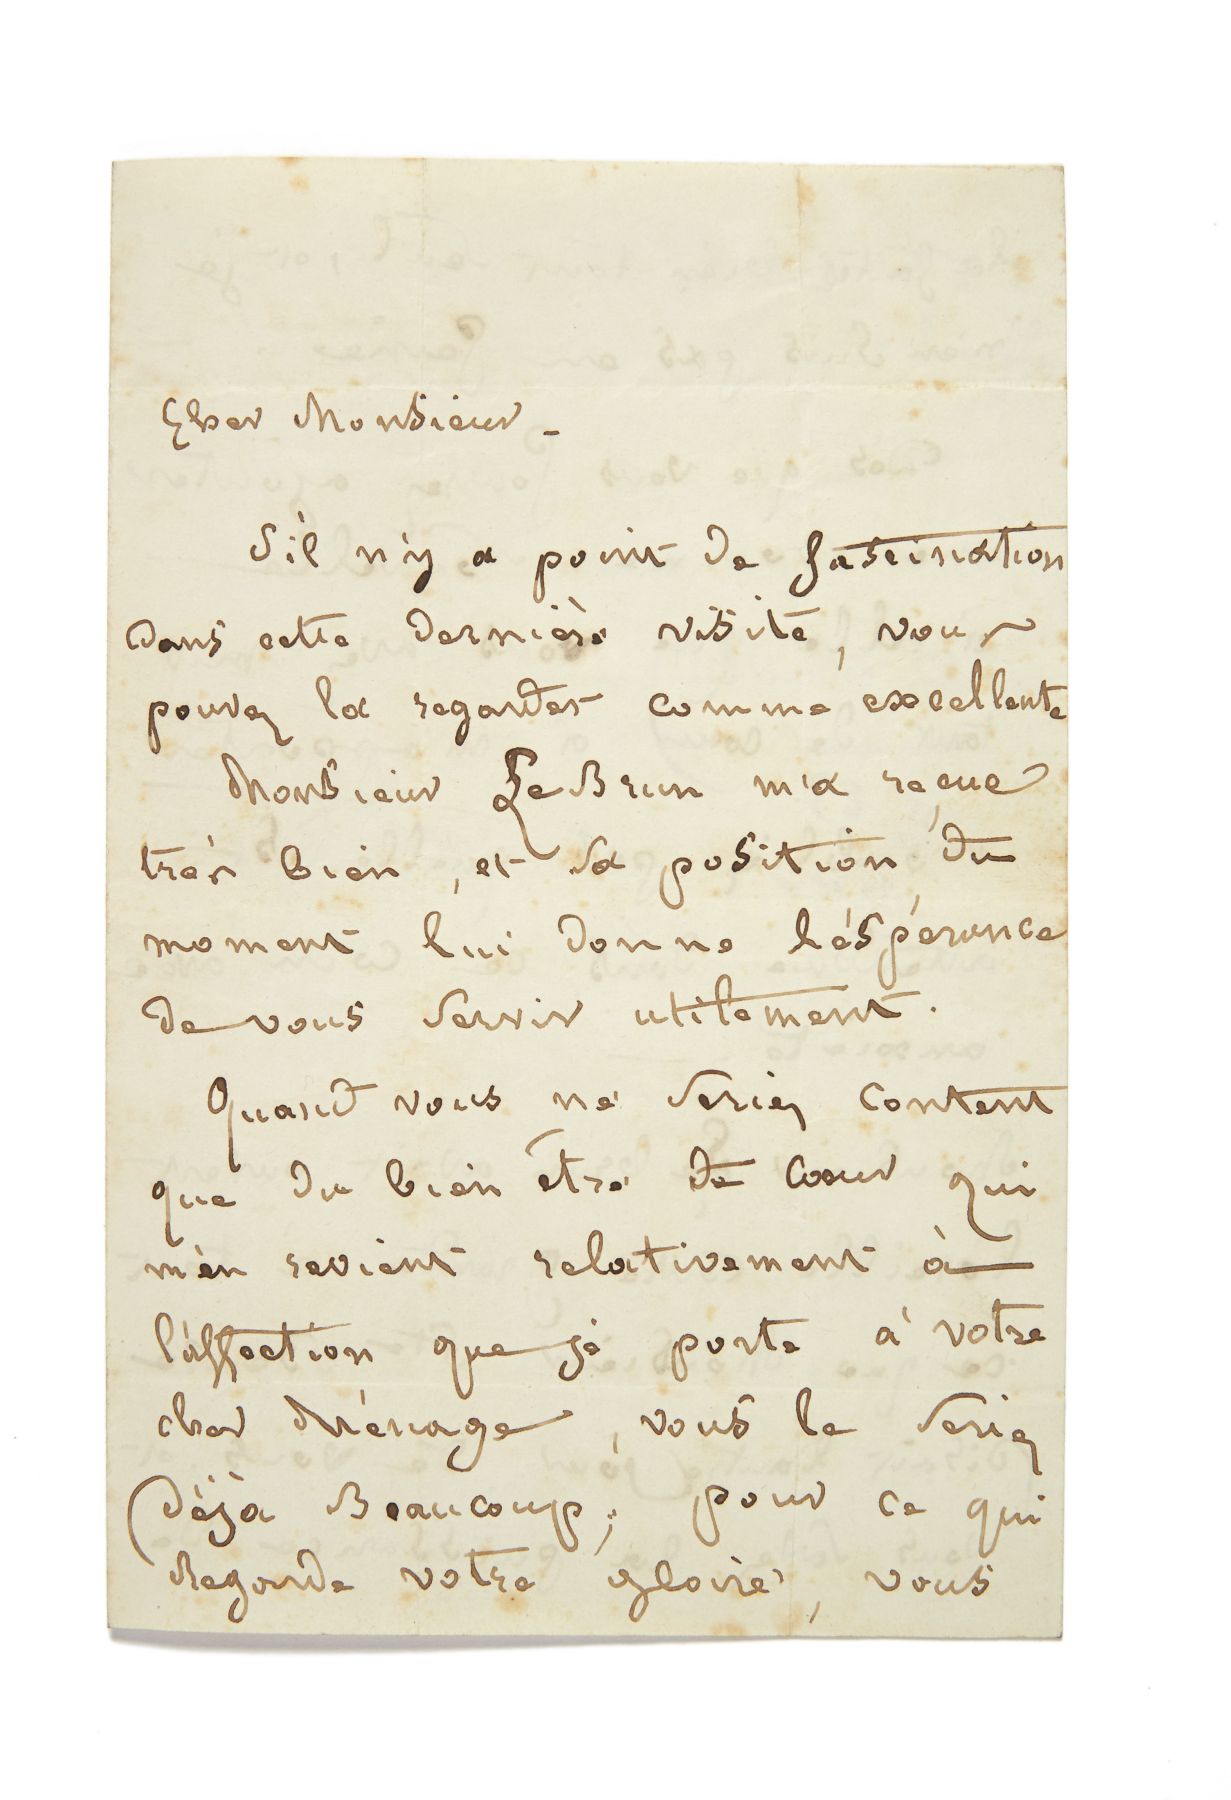 Cher Monsieur –
S'il n'y a point de fascination
dans cette dernière visite, vous
pouvez la regarder comme excellente
Monsieur LeBrun m'a reçue
très bien, et sa position du
moment lui donne l'éspérance
de vous servir utilement.
Quand vous ne seriez content
que du bien être de cœur qui
m'en revient relativement à
l'affection que je porte à votre
cher Ménage, vous le seriez
déjà Beaucoup; pour ce qui
Regarde votre gloire, vous